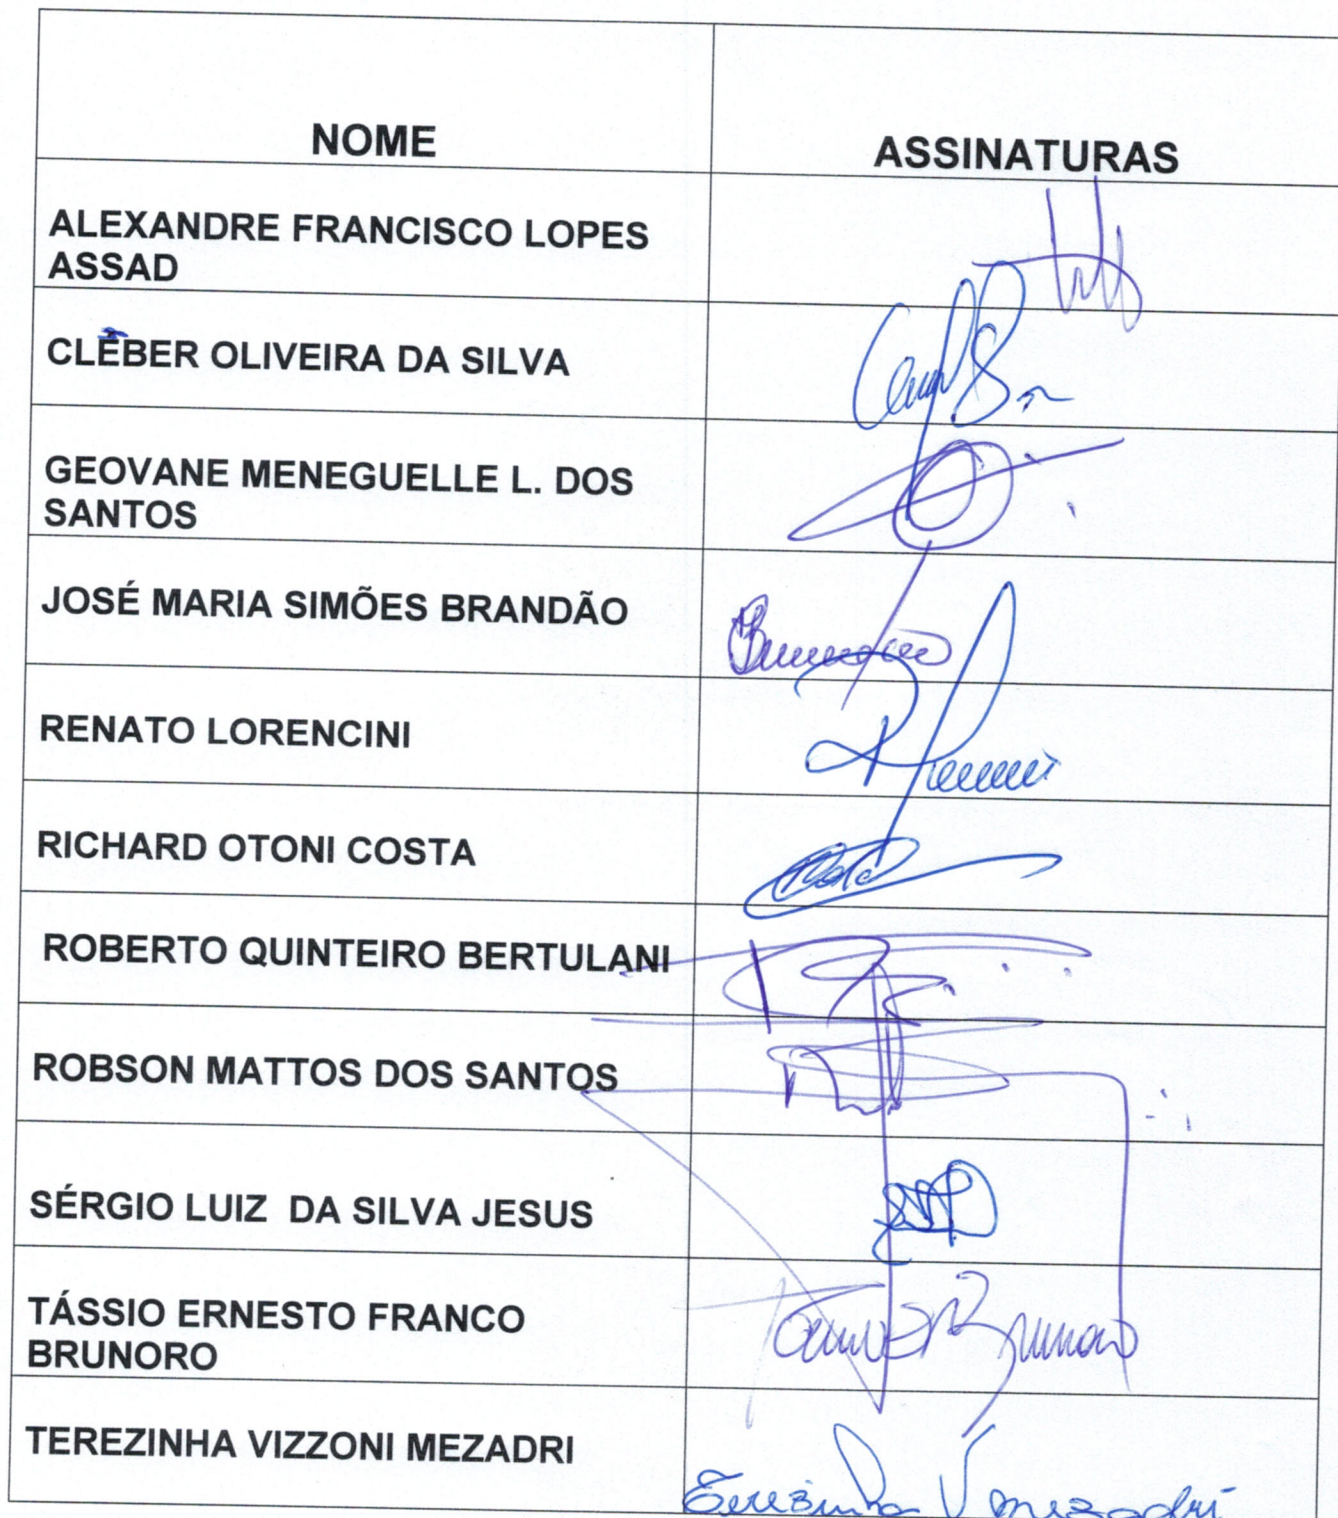 NOME
ASSINATURAS
ALEXANDRE FRANCISCO LOPES
ASSAD
CLÉBER OLIVEIRA DA SILVA
GEOVANE MENEGUELLE L. DOS
SANTOS
JOSÉ MARIA SIMÕES BRANDÃO
RENATO LORENCINI
RICHARD OTONI COSTA
ROBERTO QUINTEIRO BERTULANI
ROBSON MATTOS DOS SANTOS
SÉRGIO LUIZ DA SILVA JESUS
TÁSSIO ERNESTO FRANCO
BRUNORO
TEREZINHA VIZZONI MEZADRI
Terezinha V Mezadri